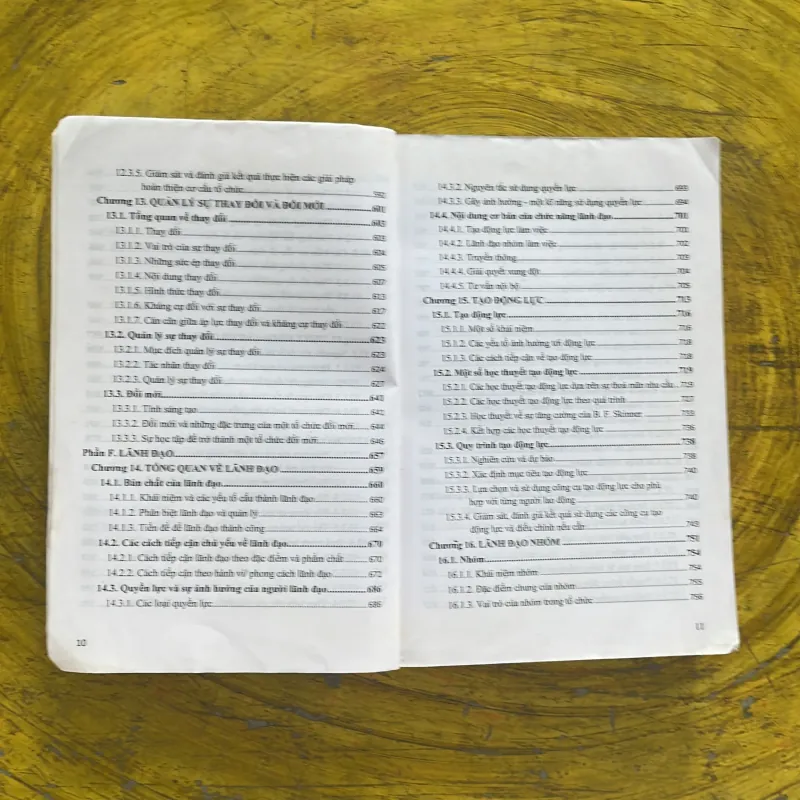 12.3.5. Giám sát và đánh giá kết quả thực hiện các giải pháp
hoàn thiện cơ cấu tổ chức
Chương 13. QUẢN LÝ SỰ THAY ĐỔI VÀ ĐỔI MỚI 601
13.1. Tổng quan về thay đổi 603
13.1.1. Thay đổi 603
13.1.2. Vai trò của sự thay đổi 604
13.1.3. Những sức ép thay đổi 605
13.1.4. Nội dung thay đổi 607
13.1.5. Hình thức thay đổi 613
13.1.6. Kháng cự đối với sự thay đổi 617
13.1.7. Cân cân giữa áp lực thay đổi và kháng cự thay đổi 622
13.2. Quản lý sự thay đổi 623
13.2.1. Mục đích quản lý sự thay đổi 623
13.2.2. Tác nhân thay đổi 624
13.2.3. Quản lý sự thay đổi 627
13.3. Đổi mới 641
13.3.1. Tính sáng tạo 642
13.3.2. Đổi mới và những đặc trưng của một tổ chức đổi mới 644
13.3.3. Sự học tập để trở thành một tổ chức đổi mới 646
Phần F. LÃNH ĐẠO 657
Chương 14. TỔNG QUAN VỀ LÃNH ĐẠO 659
14.1. Bản chất của lãnh đạo 660
14.1.1. Khái niệm và các yếu tố cấu thành lãnh đạo 660
14.1.2. Phân biệt lãnh đạo và quản lý 663
14.1.3. Tiền đề để lãnh đạo thành công 664
14.2. Các cách tiếp cận chủ yếu về lãnh đạo 670
14.2.1. Cách tiếp cận lãnh đạo theo đặc điểm và phẩm chất 670
14.2.2. Cách tiếp cận theo hành vi/ phong cách lãnh đạo 672
14.3. Quyền lực và sự ảnh hưởng của người lãnh đạo 686
14.3.1. Các loại quyền lực 686
10
14.3.2. Nguyên tắc sử dụng quyền lực 693
14.3.3. Gây ảnh hưởng - một kĩ năng sử dụng quyền lực 694
14.4. Nội dung cơ bản của chức năng lãnh đạo 701
14.4.1. Tạo động lực làm việc 701
14.4.2. Lãnh đạo nhóm làm việc 702
14.4.3. Truyền thông 703
14.4.4. Giải quyết xung đột 704
14.4.5. Tư vấn nội bộ 705
Chương 15. TẠO ĐỘNG LỰC 715
15.1. Tạo động lực 716
15.1.1. Một số khái niệm 716
15.1.2. Các yếu tố ảnh hưởng tới động lực 718
15.1.3. Các cách tiếp cận về tạo động lực 718
15.2. Một số học thuyết tạo động lực 719
15.2.1. Các học thuyết tạo động lực dựa trên sự thoả mãn nhu cầu 719
15.2.2. Các học thuyết tạo động lực theo quá trình 727
15.2.3. Học thuyết về sự tăng cường của B. F. Skinner 735
15.2.4. Kết hợp các học thuyết tạo động lực 736
15.3. Quy trình tạo động lực 738
15.3.1. Nghiên cứu và dự báo 738
15.3.2. Xác định mục tiêu tạo động lực 740
15.3.3. Lựa chọn và sử dụng công cụ tạo động lực cho phù
hợp với từng người lao động 742
15.3.4. Giám sát, đánh giá kết quả sử dụng các công cụ tạo
động lực và điều chỉnh nếu cần 743
Chương 16. LÃNH ĐẠO NHÓM 751
16.1. Nhóm 754
16.1.1. Khái niệm nhóm 754
16.1.2. Đặc điểm chung của nhóm 755
16.1.3. Vai trò của nhóm trong tổ chức 756
11